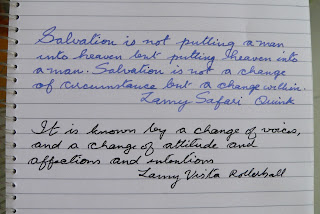 Salvation is not putting a man
into heaven but putting heaven into
a man. Salvation is not a change
of circumstance but a change within.
Lamy Safari Quink
It is known by a change of voices,
and a change of attitude and
affections and intentions
Lamy Vista Rollerball